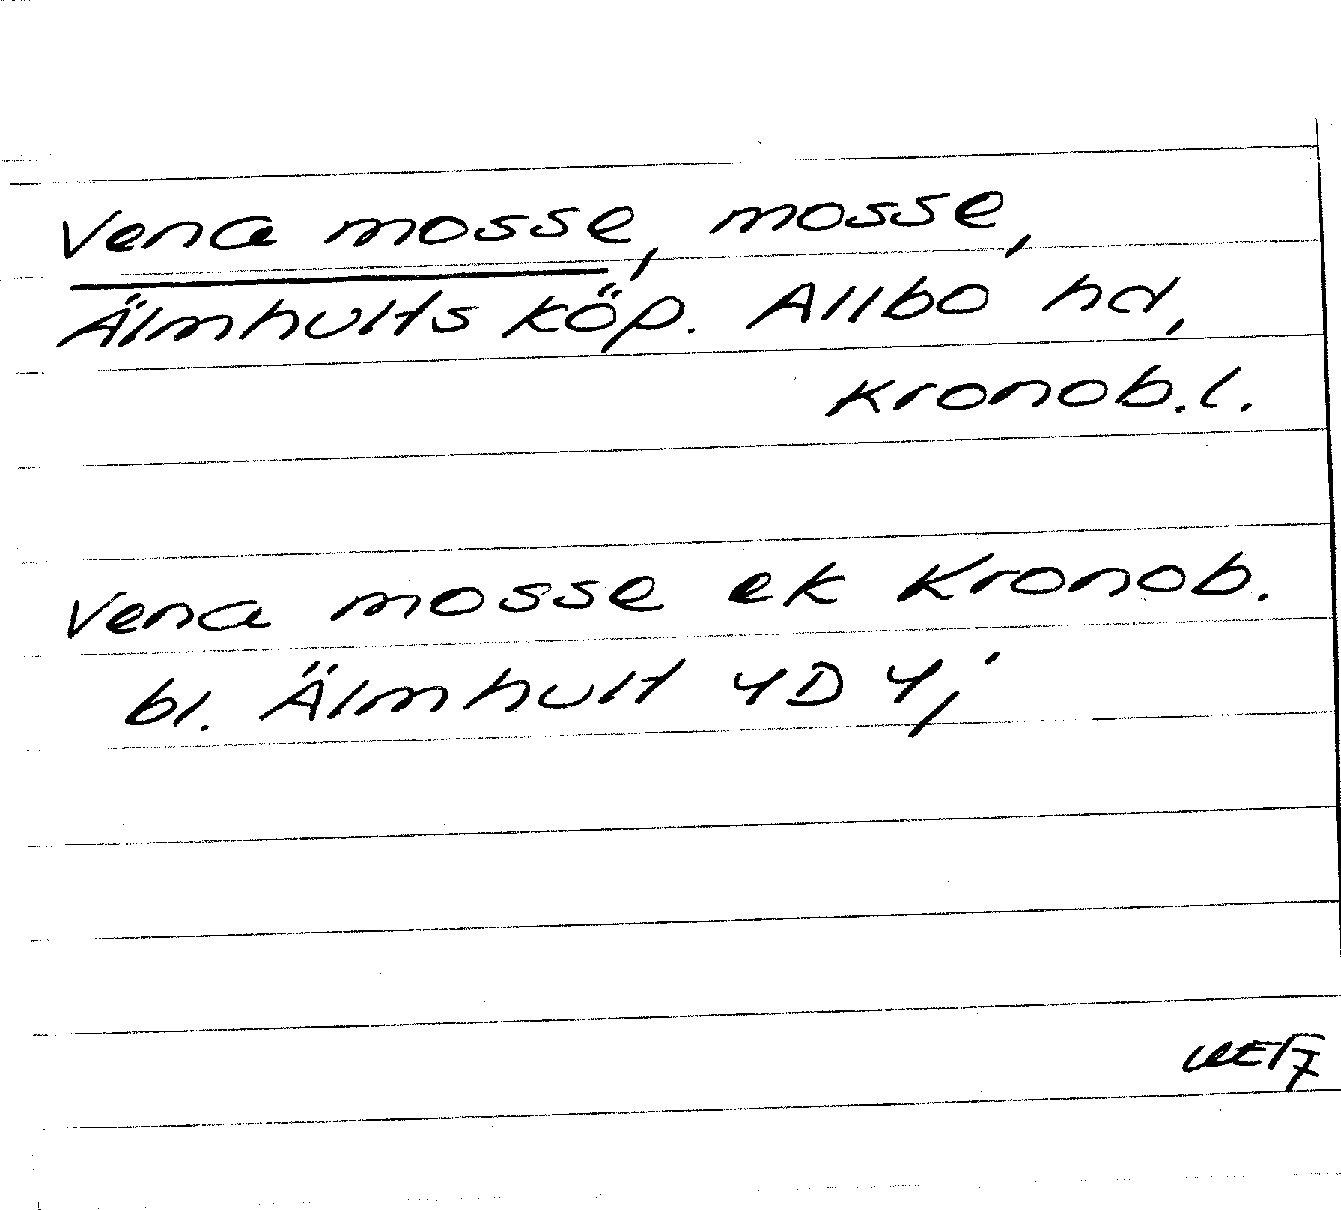 Vena mosse, mosse,
Älmhults köp. Allbo hd,
Kronob.l.
Vena mosse ek Kronob.
bl. Älmhult 4D 4;